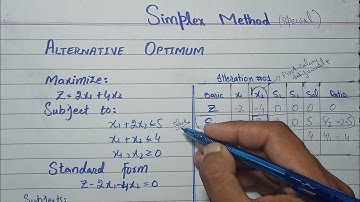 Simplex Method (special)
ALTERNATIVE OPTIMUM
Maximize:
Z = 2x₁ + 4x₂
Subject to:
x₁ + 2x₂ ≤ 5
x₁ + x₂ ≤ 4
x₁, x₂ ≥ 0
Standard form
Z - 2x₁ - 4x₂ = 0
Subjects:
Iteration #01
Basic x₁ x₂ S₁ S₂ Sol Ratio
Z -2 -4 0 0 0
0 5 5/2 = 2.5
4 4/1 = 4